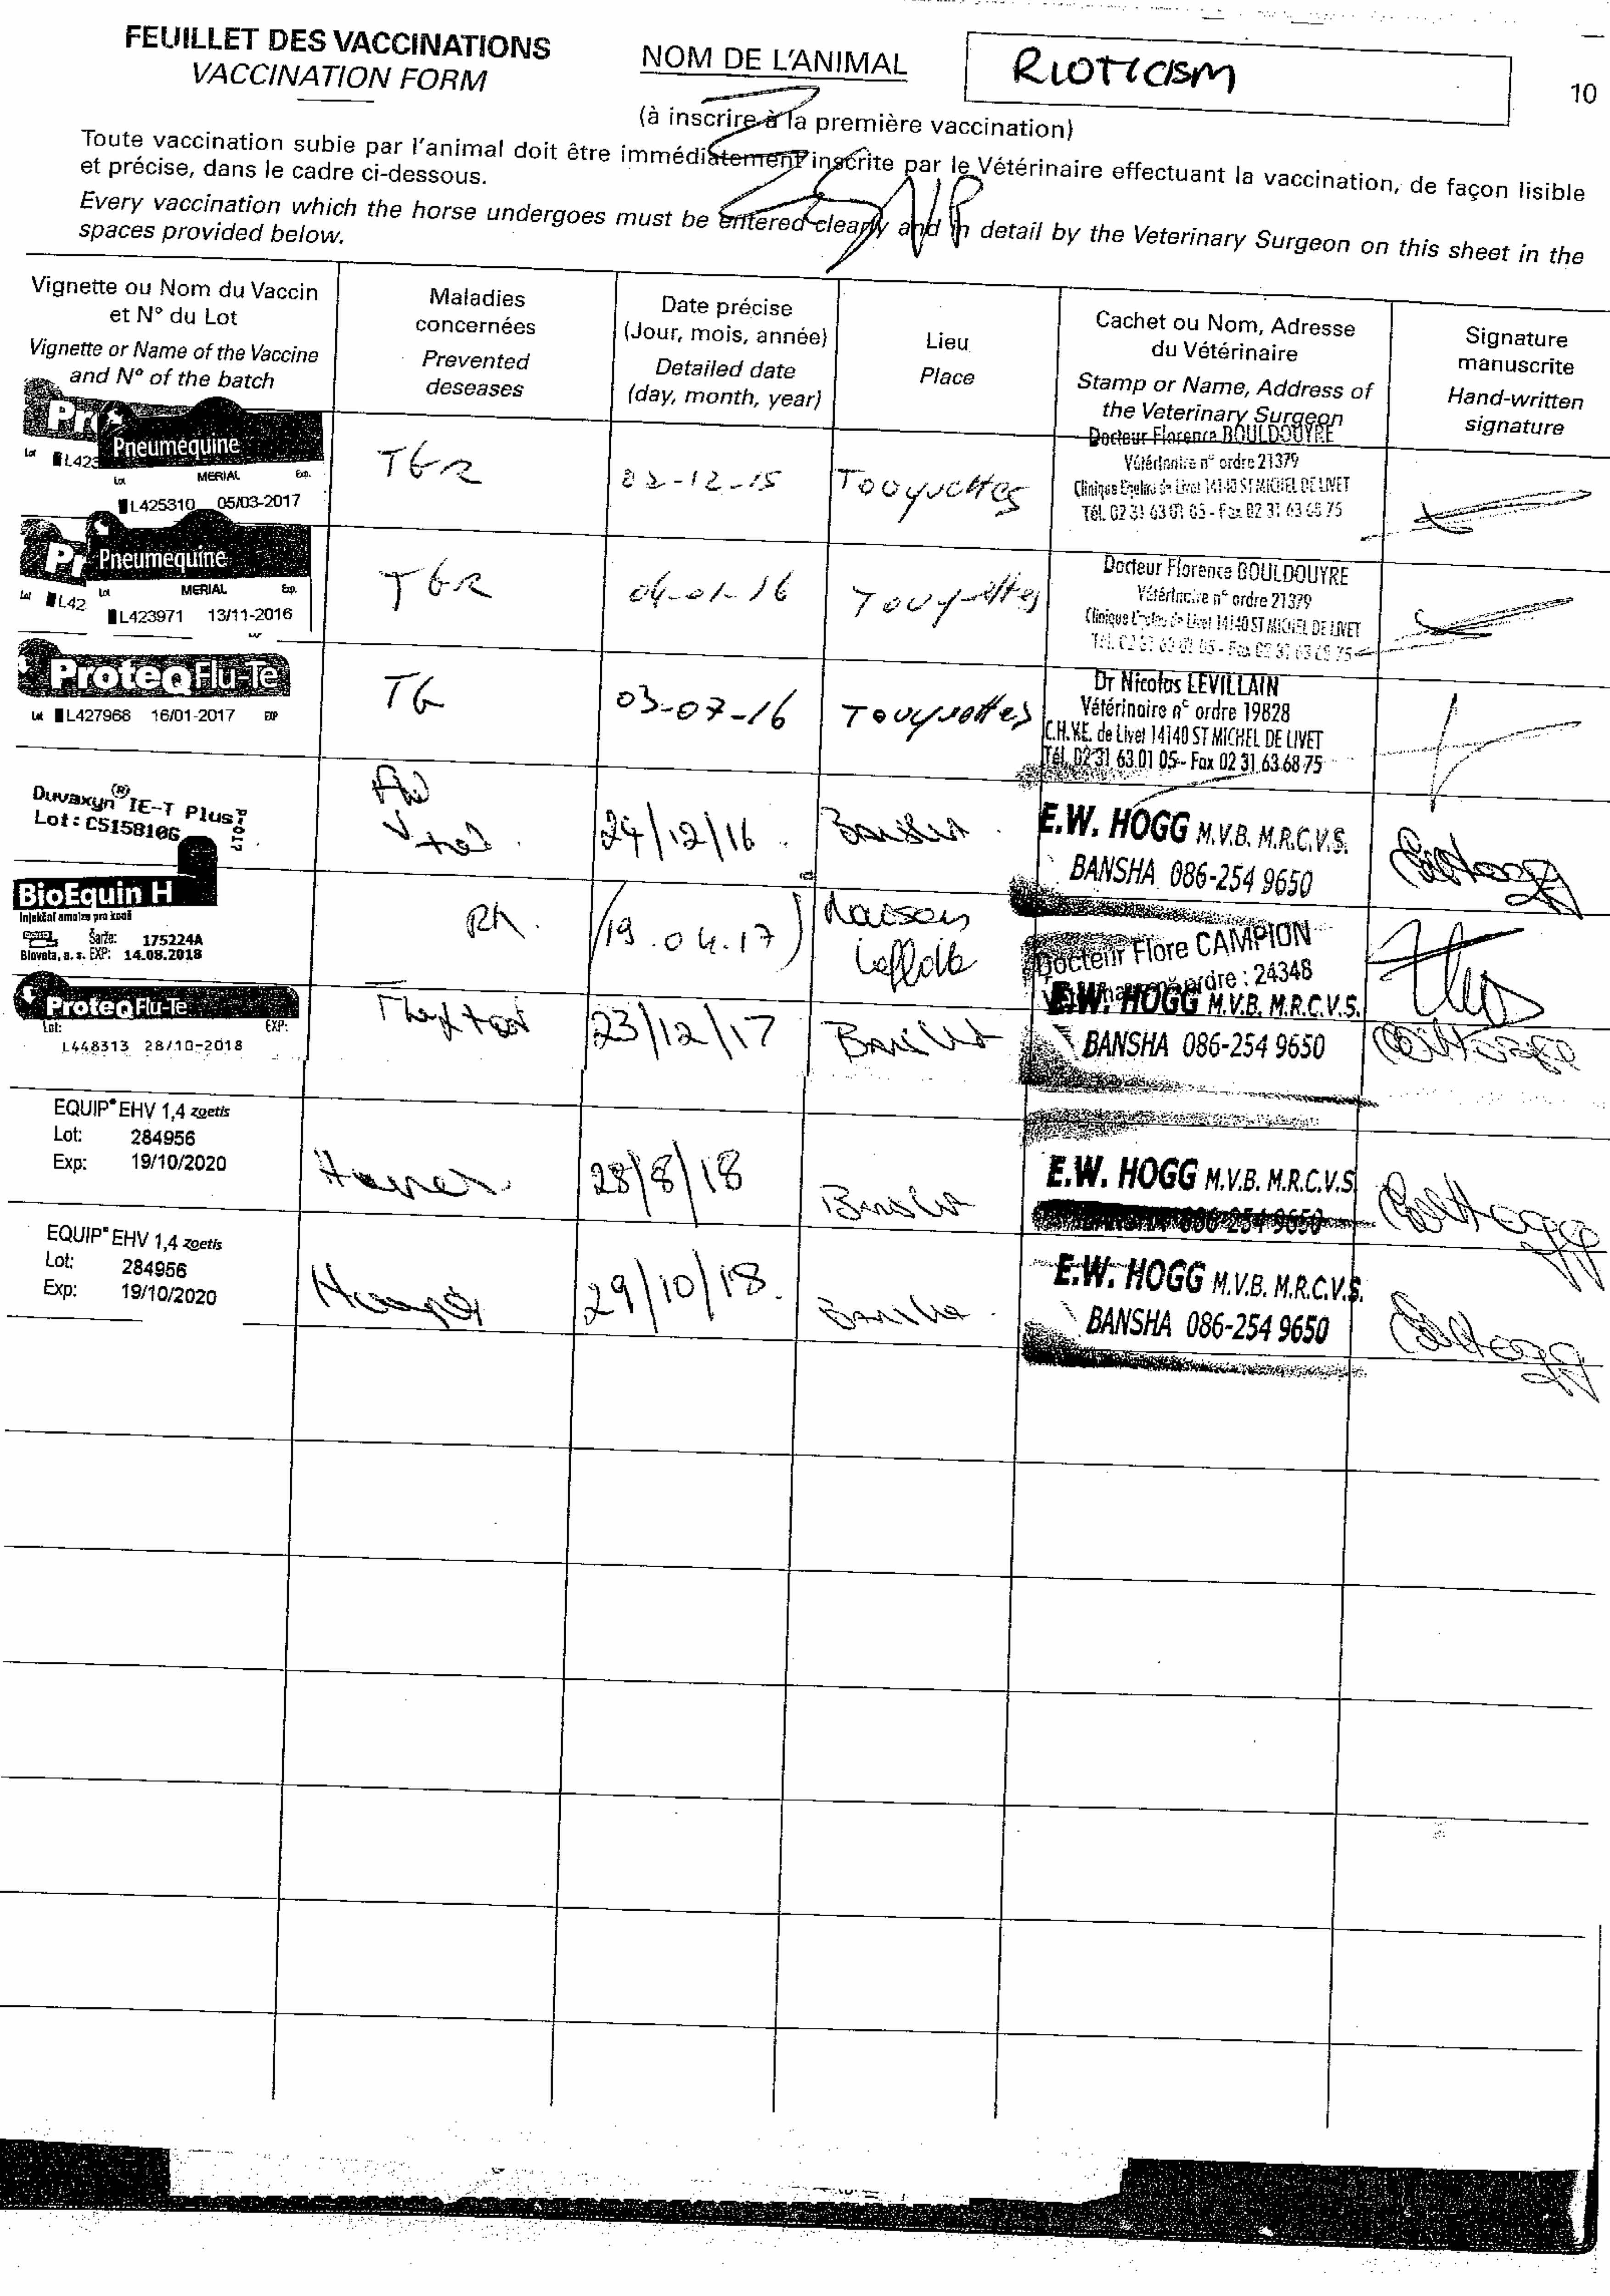 FEUILLET DES VACCINATIONS
VACCINATION FORM
NOM DE L'ANIMAL
RIOTICISM
10
(à inscrire à la première vaccination)
Toute vaccination subie par l'animal doit être immédiatement inscrite par le Vétérinaire effectuant la vaccination, de façon lisible
et précise, dans le cadre ci-dessous.
Every vaccination which the horse undergoes must be entered clearly and in detail by the Veterinary Surgeon on this sheet in the
spaces provided below.
Vignette ou Nom du Vaccin
et N° du Lot
Vignette or Name of the Vaccine
and N° of the batch
Maladies
concernées
Prevented
deseases
Date précise
(Jour, mois, année)
Detailed date
(day, month, year)
Lieu
Place
Cachet ou Nom, Adresse
du Vétérinaire
Stamp or Name, Address of
the Veterinary Surgeon
Signature
manuscrite
Hand-written
signature
Pneumequine
Lot MERIAL Exp.
L425310 05/03-2017
TGR
02-12-15
Touquettes
Docteur Florence BOULDOUYRE
Vétérinaire n° ordre 21379
14140 ST MICHEL DE LIVET
Tél. 02 31 63 01 05 - Fax 02 31 63 68 75
Pneumequine
Lot MERIAL Exp.
L423971 13/11-2016
TGR
04-01-16
Touquettes
Docteur Florence BOULDOUYRE
Vétérinaire n° ordre 21379
14140 ST MICHEL DE LIVET
Tél. 02 31 63 01 05 - Fax 02 31 63 68 75
ProteqFlu-Te
Lot L427968 16/01-2017 EXP
TG
03-07-16
Touquettes
Dr Nicolas LEVILLAIN
Vétérinaire n° ordre 19828
C.H.V.E. de Livet 14140 ST MICHEL DE LIVET
Tél. 02 31 63 01 05 - Fax 02 31 63 68 75
Duvaxyn® IE-T Plus
Lot: C515810G
Flu
24/12/16
Bansha
E.W. HOGG M.V.B. M.R.C.V.S.
BANSHA 086-254 9650
BioEquin H
Injekční emulze pro koně
Šarže: 175224A
Bioveta, a. s. EXP: 14.08.2018
Rh.
19.04.17
Docteur Flore CAMPION
ordre : 24348
ProteqFlu-Te
Lot: EXP:
L448313 28/10-2018
23/12/17
Bansha
E.W. HOGG M.V.B. M.R.C.V.S.
BANSHA 086-254 9650
EQUIP® EHV 1,4 zoetis
Lot: 284956
Exp: 19/10/2020
28/8/18
Bansha
E.W. HOGG M.V.B. M.R.C.V.S
086-254 9650
EQUIP® EHV 1,4 zoetis
Lot: 284956
Exp: 19/10/2020
29/10/18.
Bansha
E.W. HOGG M.V.B. M.R.C.V.S.
BANSHA 086-254 9650